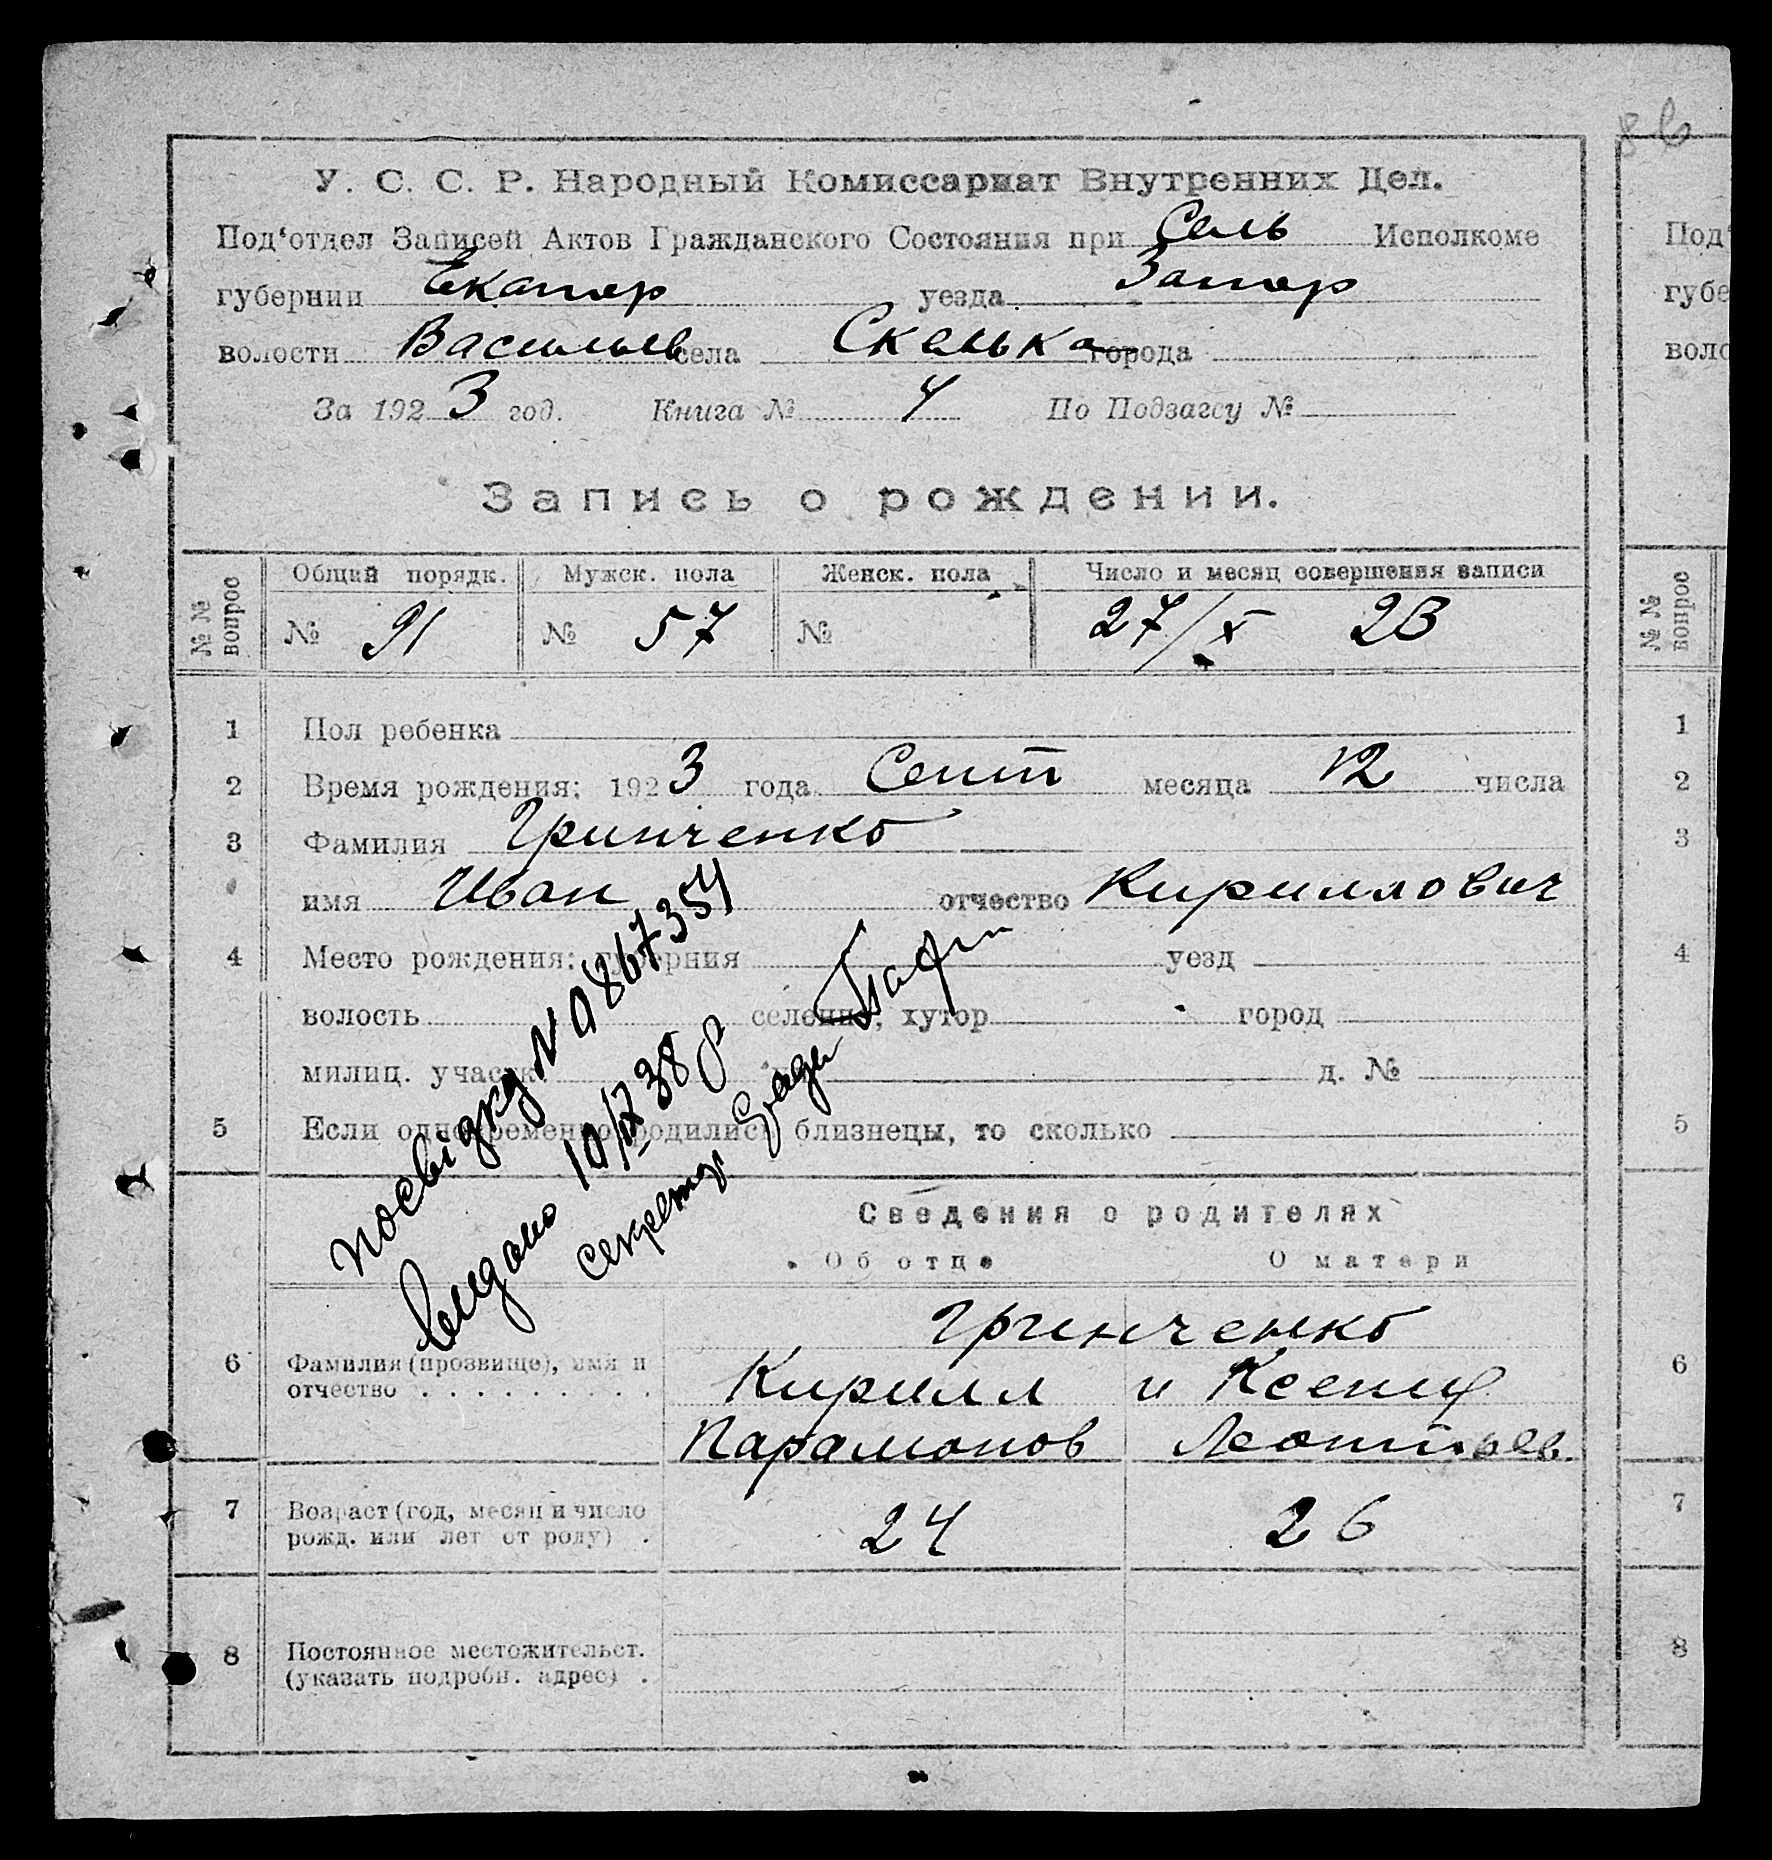 У. С. С. Р. Народный Комиссариат Внутренних Дел.
Под‘отдел Записей Актов Гражданского Состояния при Сель Исполкоме
губернии Екатер уезда Запор
волости Васильев села Скелька города
За 1923 год. Книга № 4 По Подзагсу №
Запись о рождении.
№ № вопрос Общий порядк. Мужск. пола Женск. пола Число и месяц совершения записи
№ 91 № 57 № 27/X 23
1 Пол ребенка
2 Время рождения: 1923 года Сент месяца 12 числа
3 Фамилия Гринченко
имя Иван отчество Кириллович
4 Место рождения: губерния уезд
волость селение, хутор город
милиц. участк. д. №
5 Если одновременно родились близнецы, то сколько
посвідку № 0867354
видано 10/IX 38 р
секретар
Сведения о родителях
Об отце О матери
6 Фамилия (прозвище), имя и отчество
Гринченко
Кирилл и Ксения
Парамонов Леонтьев.
7 Возраст (год, месяц и число рожд. или лет от роду) . 24 26
8 Постоянное местожительст. (указать подробн. адрес) .
Под‘
губе
воло
№ № вопрос
1
2
3
4
5
6
7
8